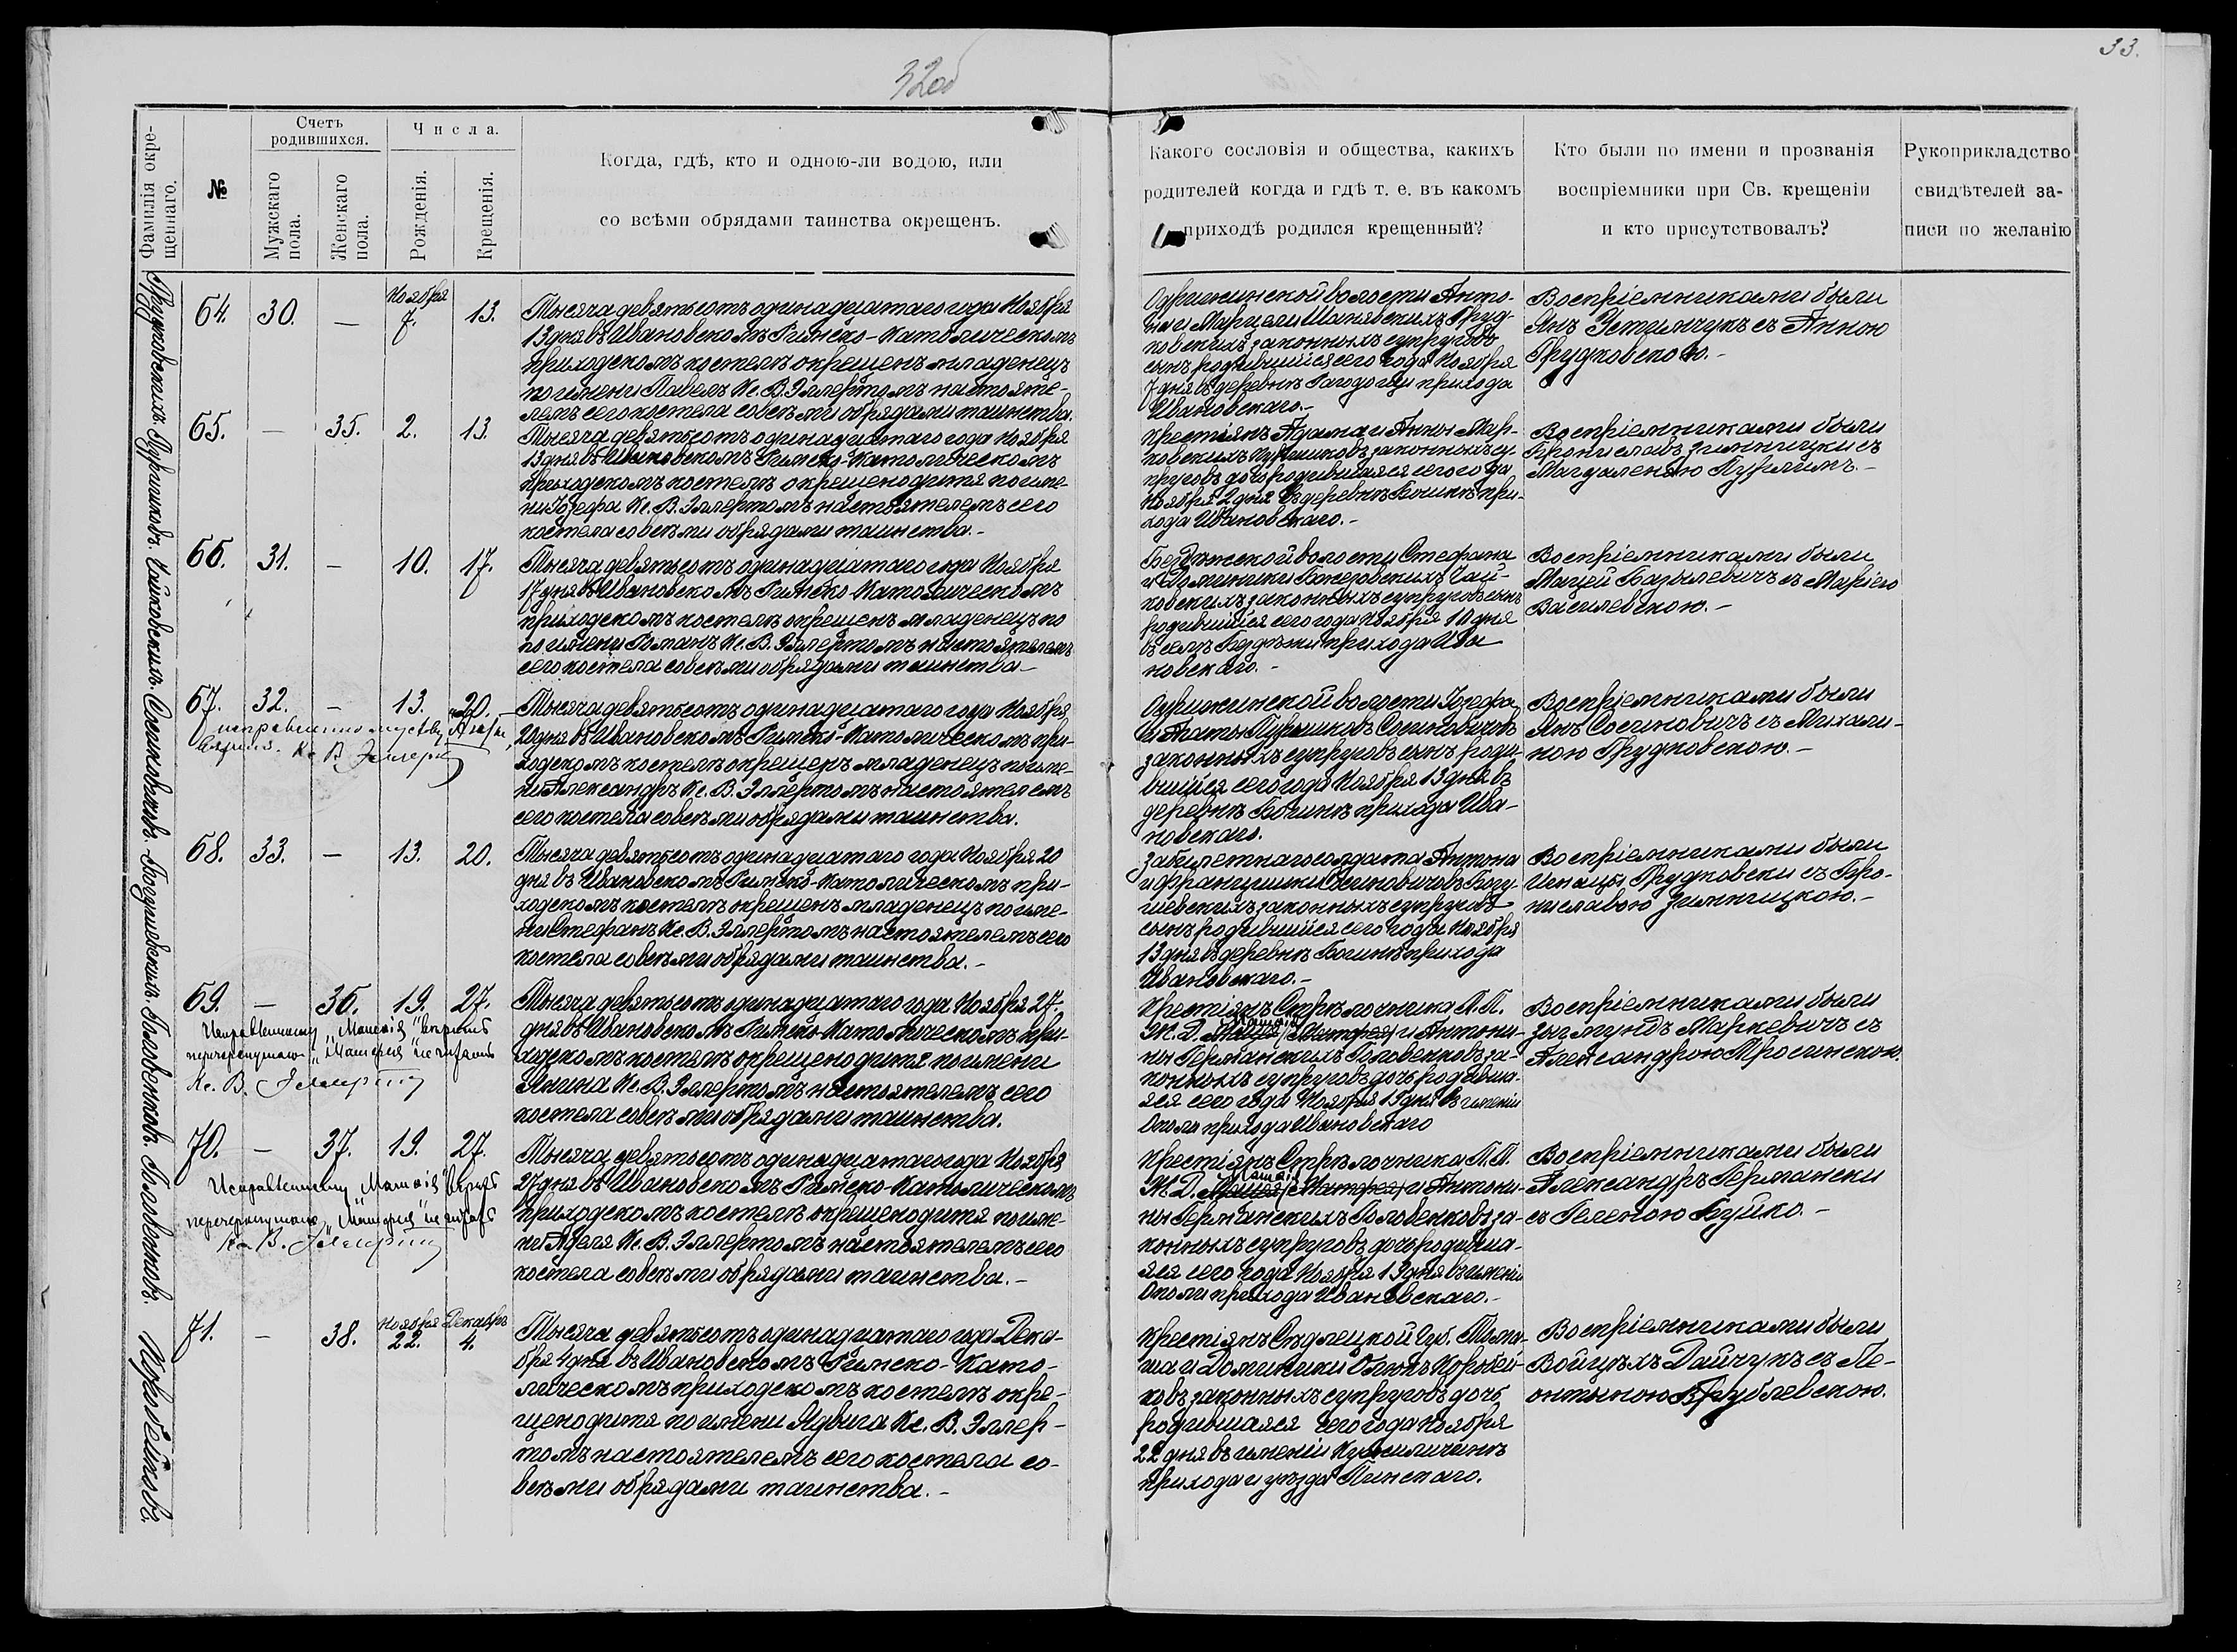 32об
33.
Фамилія окре-
щеннаго.
№
Счетъ
родившихся.
Мужскаго
пола.
Женскаго
пола.
Числа.
Рожденія.
Крещенія.
Когда, гдѣ, кто и одною-ли водою, или
со всѣми обрядами таинства окрещенъ.
Какого сословія и общества, какихъ
родителей когда и гдѣ т. е. въ какомъ
приходѣ родился крещенный?
Кто были по имени и прозванія
воспріемники при Св. крещеніи
и кто присутствовалъ?
Рукоприкладство
свидѣтелей за-
писи по желанію
Грудковскихъ.
64. 30. — Ноября 7. 13.
Тысяча девятьсотъ одинадцатаго года Ноября
13 дня въ Ивановскомъ Римско-Католическомъ
приходскомъ костелѣ окрещенъ младенецъ
по имени Павелъ Кс. В. Эллертомъ настояте-
лемъ сего костела со всѣми обрядами таинства.
волости Анто-
на и Марцели Шанявскихъ Груд-
ковскихъ законныхъ супруговъ
сынъ родившійся сего года Ноября
7 дня въ деревнѣ прихода
Ивановскаго.-
Воспріемниками были
Янъ Устимчукъ съ Анною
Грудковскою.-
65. — 35. 2. 13.
Тысяча девятьсотъ одинадцатаго года Ноября
13 дня въ Ивановскомъ Римско-Католическомъ
приходскомъ костелѣ окрещено дитя по име-
ни Юзефа Кс. В. Эллертомъ настоятелемъ сего
костела со всѣми обрядами таинства.-
Крестіянъ Адама и Анны Мер-
ковскихъ законныхъ су-
пруговъ дочь родившаяся сего года
Ноября 2 дня въ деревнѣ при-
хода Ивановскаго.-
Воспріемниками были
Брониславъ Зимницки съ
Магдаленою.-
Чайковскихъ.
66. 31. — 10. 17.
Тысяча девятьсотъ одинадцатаго года Ноября
17 дня въ Ивановскомъ Римско-Католическомъ
приходскомъ костелѣ окрещенъ младенецъ по
по имени Романъ Кс. В. Эллертомъ настоятелемъ
сего костела со всѣми обрядами таинства-
волости Стефана
и Доминики Чай-
ковскихъ законныхъ супруговъ сынъ
родившійся сего года Ноября 10 дня
въ селѣ прихода Ива
новскаго.-
Воспріемниками были
Мацей съ Маріею
Василевскою.-
Сосиновичъ.
67. 32. — 13. 20.
Кс. В. Эллертъ
Тысяча девятьсотъ одинадцатаго года Ноября
20 дня въ Ивановскомъ Римско-Католическомъ при-
ходскомъ костелѣ окрещенъ младенецъ по име-
ни Александръ Кс. В. Эллертомъ настоятелемъ
сего костела со всѣми обрядами таинства.
волости Юзефа
и Агаты Сосиновичовъ
законныхъ супруговъ сынъ роди-
вшійся сего года Ноября 13 дня въ
деревнѣ прихода Ива-
новскаго.
Воспріемниками были
Янъ Сосиновичъ съ Михали-
ною Грудковскою.-
Богушевскихъ.
68. 33. — 13. 20.
Тысяча девятьсотъ одинадцатаго года Ноября 20
дня въ Ивановскомъ Римско-Католическомъ при-
ходскомъ костелѣ окрещенъ младенецъ по име-
ни Стефанъ Кс. В. Эллертомъ настоятелемъ сего
костела со всѣми обрядами таинства.-
Забилетнаго солдата Антона
и Францишки Сосиновичовъ Богу-
шевскихъ законныхъ супруговъ
сынъ родившійся сего года Ноября
13 дня въ деревнѣ прихода
Ивановскаго.-
Воспріемниками были
Игнацы Грудковски съ Бро-
ниславою Зимницкою.-
Головенковъ.
69. — 36. 19. 27.
Исправленному „Матвія" вѣрить
перечеркнутаго „Матфея" не читать
Кс. В. Эллертъ
Тысяча девятьсотъ одинадцатаго года Ноября 27
дня въ Ивановскомъ Римско-Католическомъ при-
ходскомъ костелѣ окрещено дитя по имени
Янина Кс. В. Эллертомъ настоятелемъ сего
костела со всѣми обрядами таинства.
Крестіянъ Стрѣлочника П. П.
Ж. Д. и Антони-
ны Германскихъ Головенковъ за-
конныхъ супруговъ дочь родивша-
яся сего года Ноября 19 дня въ имѣніи
Ополи прихода Ивановскаго
Воспріемниками были
Зыгмундъ Маркевичъ съ
Александрою Мросинскою.
Головенковъ.
70. — 37. 19. 27.
Исправленному „Матвія" вѣрить
перечеркнутаго „Матфея" не читать
Кс. В. Эллертъ
Тысяча девятьсотъ одинадцатаго года Ноября
27 дня въ Ивановскомъ Римско-Католическомъ
приходскомъ костелѣ окрещено дитя по име-
ни Адель Кс. В. Эллертомъ настоятелемъ сего
костела со всѣми обрядами таинства.-
Крестіянъ Стрѣлочника П. П.
Ж. Д. и Антони-
ны Германскихъ Головенковъ за-
конныхъ супруговъ дочь родивша-
яся сего года Ноября 19 дня въ имѣніи
Ополи прихода Ивановскаго.-
Воспріемниками были
Александръ Германски
съ Геленою Буйко.-
Коробейковъ.
71. — 38. Ноября 22. Декабрь 4.
Тысяча девятьсотъ одинадцатаго года Дека-
бря 4 дня въ Ивановскомъ Римско-Като-
лическомъ приходскомъ костелѣ окре-
щено дитя по имени Ядвига Кс. В. Эллер-
томъ настоятелемъ сего костела со-
всѣми обрядами таинства.-
Крестіянъ Сѣдлецкой Губ. Тома-
ша и Доминики Коробей-
ковъ законныхъ супруговъ дочь
родившаяся сего года Ноября
22 дня въ имѣніи
прихода и уѣзда Пинскаго.
Воспріемниками были
Войцѣхъ Дайчукъ съ Ле-
онтыною Врублевскою.